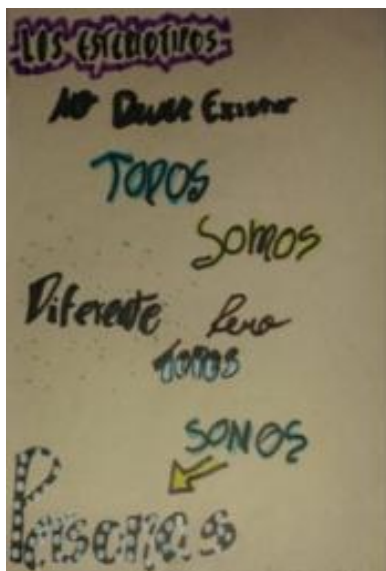 LOS ESTEREOTIPOS
NO DEBEN EXISTIR
TODOS
SOMOS
Diferente Pero
TODOS
SOMOS
Personas